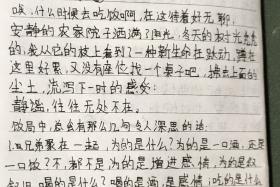 唉,什么时候去吃饭啊,在这待着好无聊,
安静的农家院子洒满了阳光,冬天的树光秃秃
的,我从它的枝上看到了一种新生命在跃动,蹲在
这里好累,又没有座位,找一个桌子吧,拂去上面的
尘土,流泻下一时的感受:
静谧,往往无处不在。
饭局中,总会有那么几句令人深思的话:
1.哥兄弟聚在一起,为的是什么?为的是一口酒,还是
一口饭?不,都不是,为的是增进感情,为的是叙
叙旧,喝的是什么?喝的是酒,是感情;吃的是什么